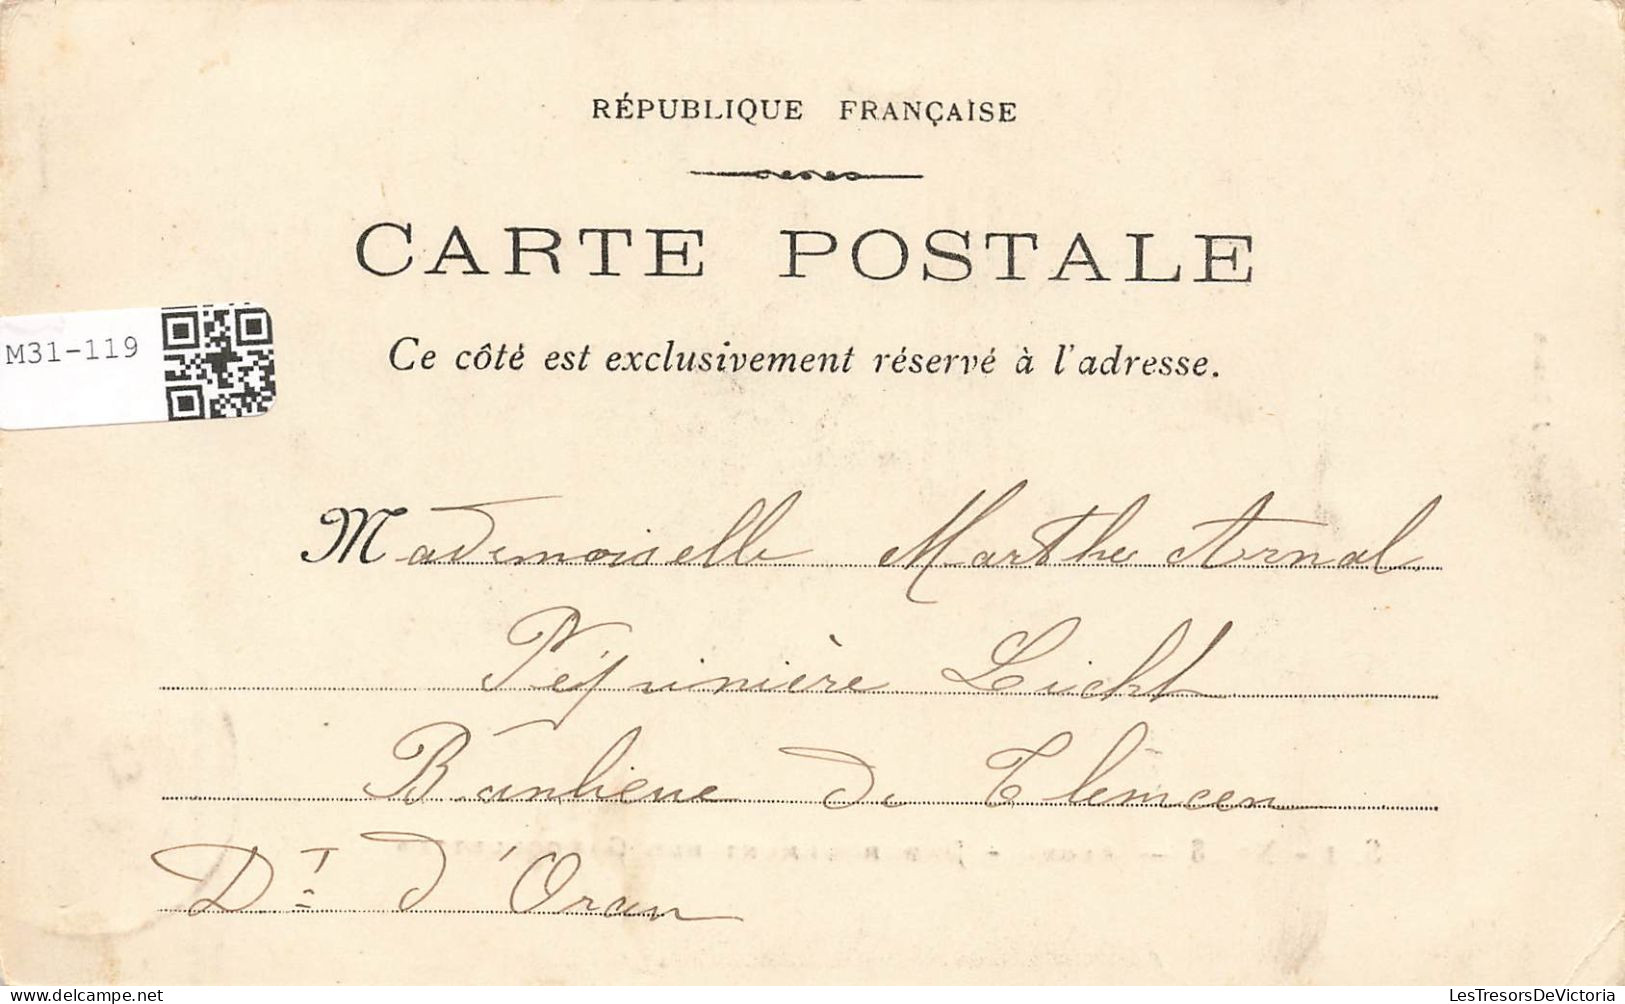 RÉPUBLIQUE FRANÇAISE
CARTE POSTALE
M31-119
Ce côté est exclusivement réservé à l'adresse.
Mademoiselle Marthe Arnal
Pépinière Licht
Banlieue de Tlemcen
Dt d'Oran
LesTresorsDeVictoria